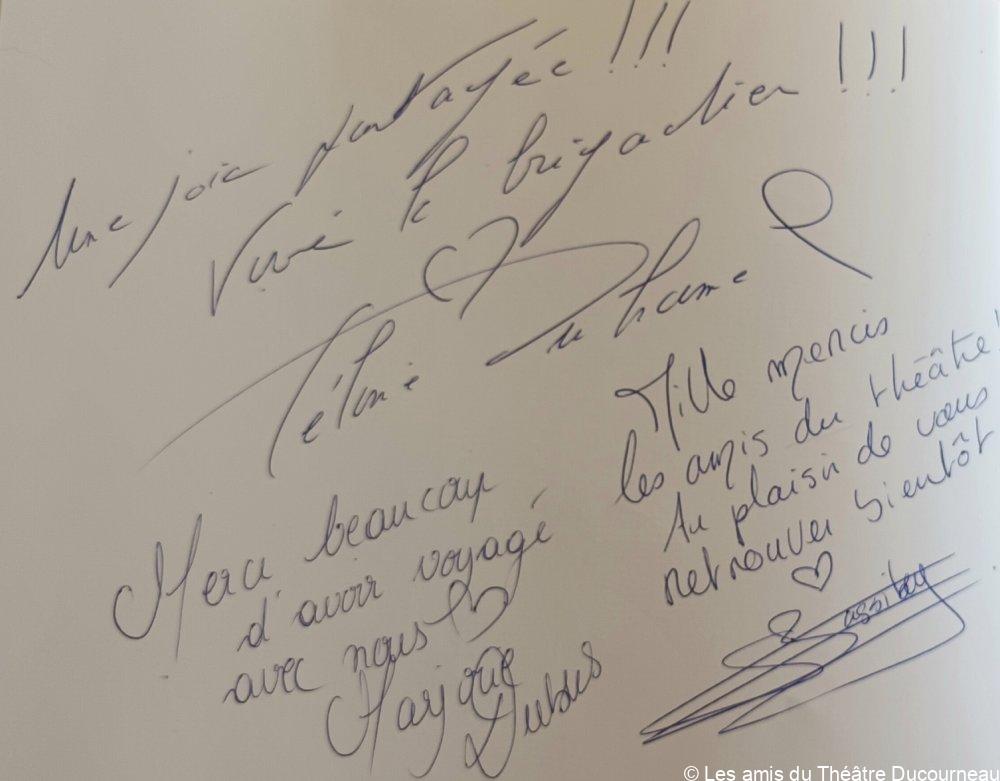 Une joie partagée !!!
Vive le brigadier !!!
Merci beaucoup
d'avoir voyagé
avec nous
Marjorie
Dubus
Mille mercis
les amis du théâtre !
Au plaisir de vous
retrouver bientôt
© Les amis du Théâtre Ducourneau